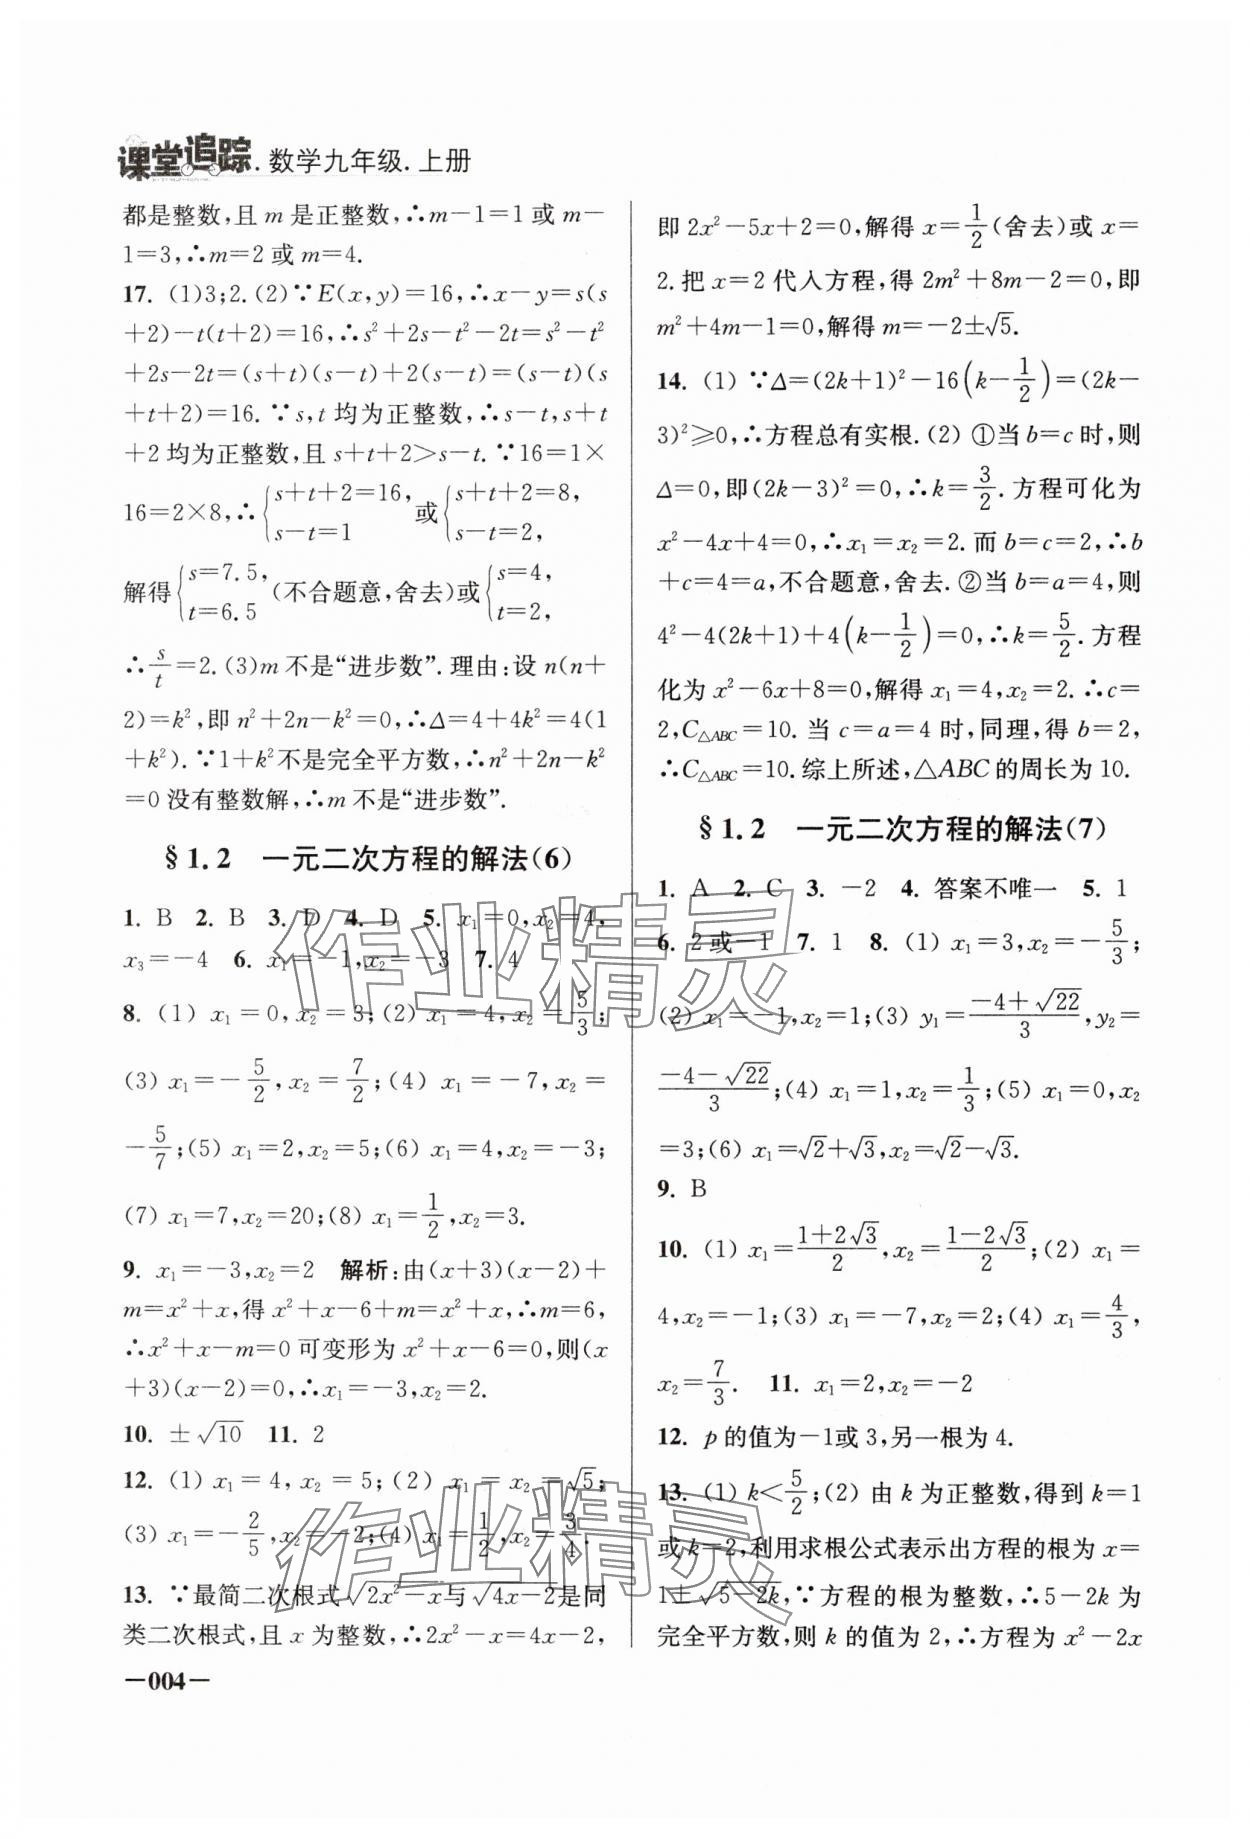 课堂追踪.数学九年级.上册
都是整数,且 m 是正整数,∴m−1=1 或 m−
1=3,∴m=2 或 m=4.
17. (1)3;2. (2)∵E(x,y)=16,∴x−y=s(s
+2)−t(t+2)=16,∴s²+2s−t²−2t=s²−t²
+2s−2t=(s+t)(s−t)+2(s−t)=(s−t)(s
+t+2)=16. ∵s,t 均为正整数,∴s−t,s+t
+2 均为正整数,且 s+t+2>s−t. ∵16=1×
16=2×8,∴{s+t+2=16, s−t=1 或{s+t+2=8, s−t=2,
解得{s=7.5, t=6.5 (不合题意,舍去)或{s=4, t=2,
∴s/t=2. (3)m 不是“进步数”. 理由:设 n(n+
2)=k²,即 n²+2n−k²=0,∴Δ=4+4k²=4(1
+k²). ∵1+k²不是完全平方数,∴n²+2n−k²
=0 没有整数解,∴m 不是“进步数”.
§1.2 一元二次方程的解法(6)
1. B 2. B 3. D 4. D 5. x₁=0,x₂=4,
x₃=−4 6. x₁=−1,x₂=−3 7. 4
8. (1) x₁=0,x₂=3;(2) x₁=4,x₂=5/3;
(3) x₁=−5/2,x₂=7/2;(4) x₁=−7,x₂=
−5/7;(5) x₁=2,x₂=5;(6) x₁=4,x₂=−3;
(7) x₁=7,x₂=20;(8) x₁=1/2,x₂=3.
9. x₁=−3,x₂=2 解析:由(x+3)(x−2)+
m=x²+x,得 x²+x−6+m=x²+x,∴m=6,
∴x²+x−m=0 可变形为 x²+x−6=0,则(x
+3)(x−2)=0,∴x₁=−3,x₂=2.
10. ±√10 11. 2
12. (1) x₁=4, x₂=5;(2) x₁=x₂=√5;
(3) x₁=−2/5,x₂=−2;(4) x₁=1/2,x₂=3/4.
13. ∵最简二次根式√(2x²−x)与√(4x−2)是同
类二次根式,且 x 为整数,∴2x²−x=4x−2,
—004—
即 2x²−5x+2=0,解得 x=1/2(舍去)或 x=
2. 把 x=2 代入方程,得 2m²+8m−2=0,即
m²+4m−1=0,解得 m=−2±√5.
14. (1) ∵Δ=(2k+1)²−16(k−1/2)=(2k−
3)²≥0,∴方程总有实根. (2) ①当 b=c 时,则
Δ=0,即(2k−3)²=0,∴k=3/2. 方程可化为
x²−4x+4=0,∴x₁=x₂=2. 而 b=c=2,∴b
+c=4=a,不合题意,舍去. ②当 b=a=4,则
4²−4(2k+1)+4(k−1/2)=0,∴k=5/2. 方程
化为 x²−6x+8=0,解得 x₁=4,x₂=2. ∴c=
2,C△ABC=10. 当 c=a=4 时,同理,得 b=2,
∴C△ABC=10. 综上所述,△ABC 的周长为 10.
§1.2 一元二次方程的解法(7)
1. A 2. C 3. −2 4. 答案不唯一 5. 1
6. 2 或−1 7. 1 8. (1) x₁=3,x₂=−5/3;
(2) x₁=−1,x₂=1;(3) y₁=(−4+√22)/3,y₂=
(−4−√22)/3;(4) x₁=1,x₂=1/3;(5) x₁=0,x₂
=3;(6) x₁=√2+√3,x₂=√2−√3.
9. B
10. (1) x₁=(1+2√3)/2,x₂=(1−2√3)/2;(2) x₁=
4,x₂=−1;(3) x₁=−7,x₂=2;(4) x₁=4/3,
x₂=7/3. 11. x₁=2,x₂=−2
12. p 的值为−1或 3,另一根为 4.
13. (1) k<5/2;(2) 由 k 为正整数,得到 k=1
或 k=2,利用求根公式表示出方程的根为 x=
1±√(5−2k),∵方程的根为整数,∴5−2k 为
完全平方数,则 k 的值为 2,∴方程为 x²−2x
作业精灵
作业精灵